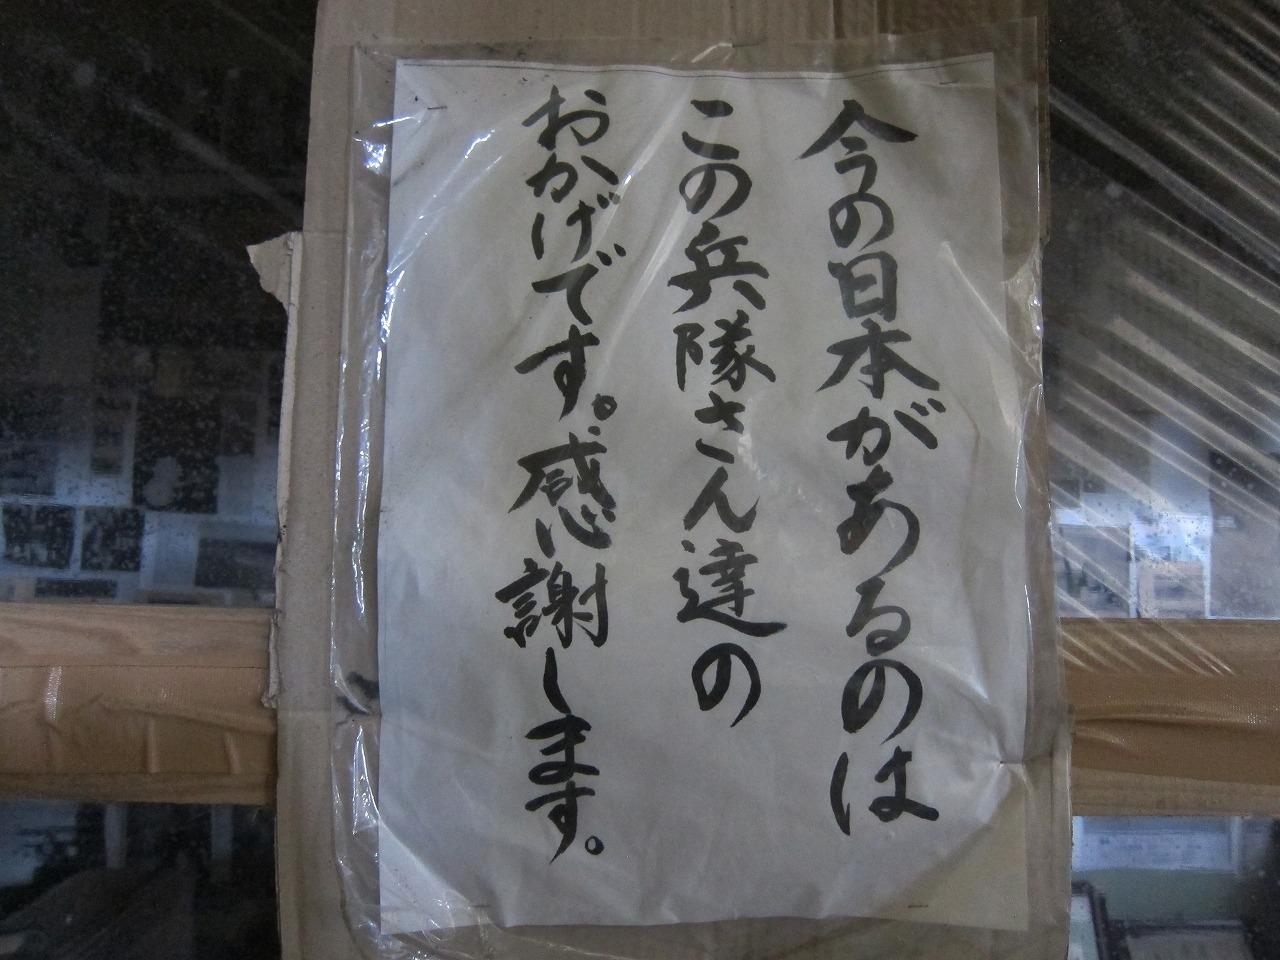 今の日本があるのは
この兵隊さん達の
おかげです。感謝します。